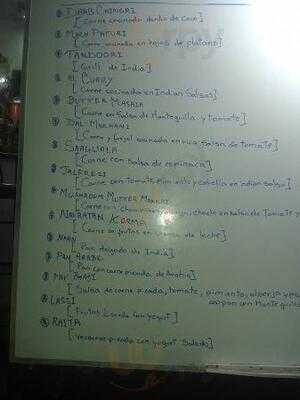 DAAB CHINGRI
[Carne cocinado dentro de Coco]
MACH PATURI
[Carne cocinada en hojas de platano]
TANDOORI
[Grill de India]
EL CURRY
[Carne cocinada en Indian Salsas]
BUTTER MASALA
[Carne en Salsa de Mantequilla y tomate]
DAL MAKHANI
[Carne y frejol cocinada en rica salsa de tomate]
SAAGWALA
[Carne con salsa de espinaca]
JALFREZI
[Carne con tomate, pimiento y cebolla en indian salsa]
MUSHROOM MUTTER MAKHAN
[Carne con champiñon, cheese en salsa de Tomate y
NAVRATAN KORMA
[Carne con frutas en crema de leche]
NAAN
[Pan delgado de India]
PAN ARABE
[Pan con carne picada de Arabia]
PAV BHAJI
[Salsa de carne picada, tomate, pimiento,
con pan con Mantequilla
LASSI
[Frutas licuada con yogurt]
RAITA
[verduras picada con yogurt Salado]